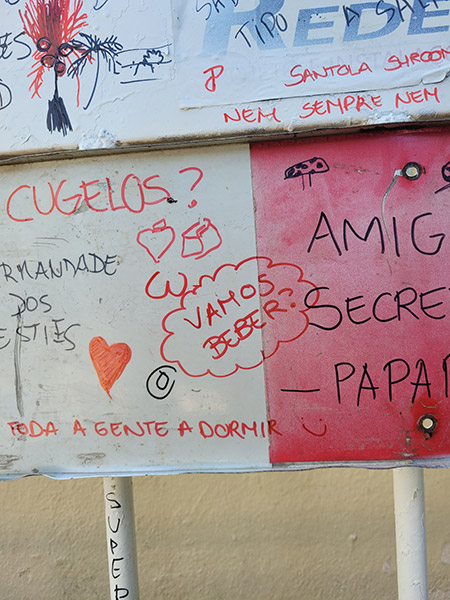 TIPO
A SA
REDE
SANTOLA SHROOM
NEM SEMPRE NEM
CUGELOS?
AMIG
RMANDADE
DOS
ESTIES
VAMOS
BEBER?
SECRE
— PAPA
TODA A GENTE A DORMIR
SUPER